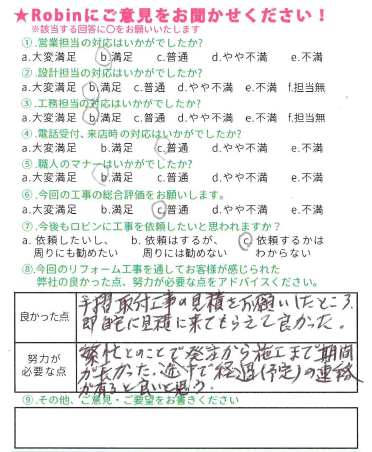 ★Robinにご意見をお聞かせください！
※該当する回答に○をお願いいたします
①.営業担当の対応はいかがでしたか?
a.大変満足 b.満足 c.普通 d.やや不満 e.不満
②.設計担当の対応はいかがでしたか?
a.大変満足 b.満足 c.普通 d.やや不満 e.不満 f.担当無
③.工務担当の対応はいかがでしたか?
a.大変満足 b.満足 c.普通 d.やや不満 e.不満 f.担当無
④.電話受付、来店時の対応はいかがでしたか?
a.大変満足 b.満足 c.普通 d.やや不満 e.不満
⑤.職人のマナーはいかがでしたか?
a.大変満足 b.満足 c.普通 d.やや不満 e.不満
⑥.今回の工事の総合評価をお願いします。
a.大変満足 b.満足 c.普通 d.やや不満 e.不満
⑦.今後もロビンに工事を依頼したいと思われますか？
a. 依頼したいし、 b. 依頼はするが、 c. 依頼するかは
周りにも勧めたい 周りには勧めない わからない
⑧.今回のリフォーム工事を通してお客様が感じられた
弊社の良かった点、努力が必要な点をアドバイスください。
良かった点
手摺取付工事の見積をお願いしたところ
即自宅に見積に来てもらえて良かった。
努力が
必要な点
繁忙とのことで発注から施工まで期間
が長かった。途中で経過(予定)の連絡
が有ると良いと思う。
⑨.その他、ご意見・ご要望をお書きください